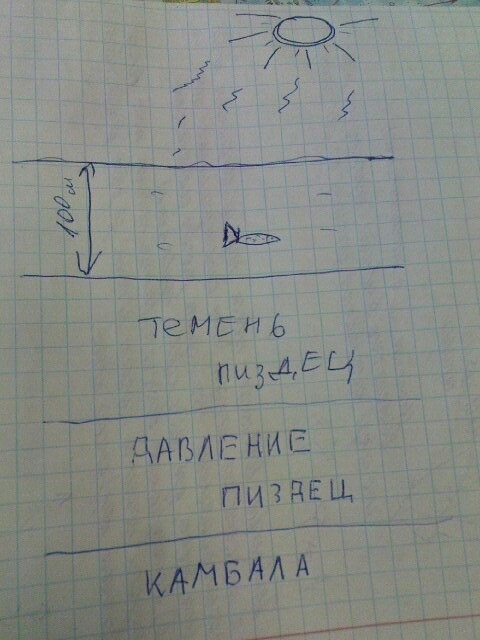 100 м
ТЕМЕНЬ
ПИЗДЕЦ
ДАВЛЕНИЕ
ПИЗДЕЦ
КАМБАЛА